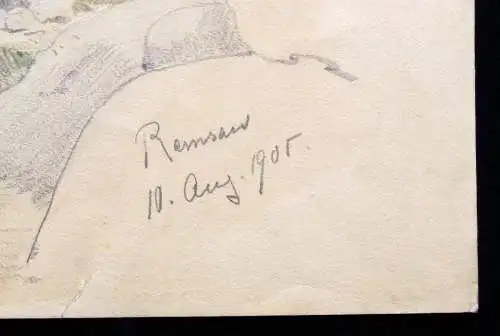 Ramsau
10. Aug. 1905.